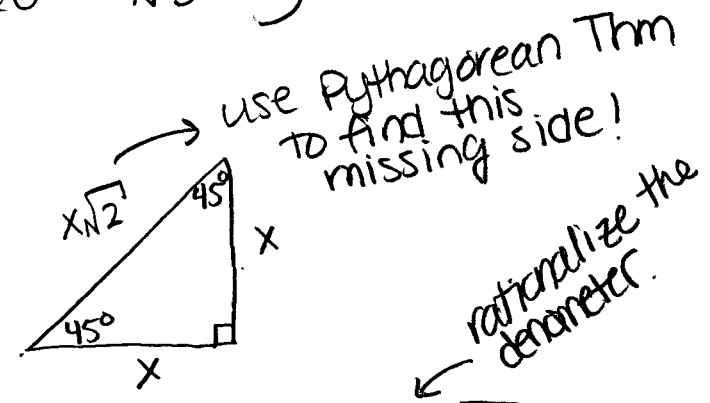 use Pythagorean Thm
to find this
missing side!
x√2
45°
x
45°
x
rationalize the
denometer.